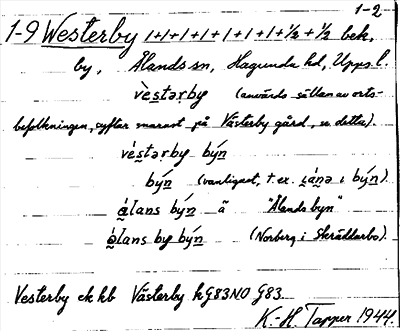 1-2
1-9 Westerby 1+1+1+1+1+1+½+½ bek.
by, Ålands sn, Hagunda hd, Upps. l.
vèstərby (används sällan av orts-
befolkningen, syftar snarast på Västerby gård, se detta).
véstərby býn
býn (vanligast, t. ex. i býn)
ålans býn ã "Ålands byn"
ålans by býn (Norberg i Skräddarbo).
Vesterby ek kb Västerby hG83NO G83.
K.-H. Tapper 1944.